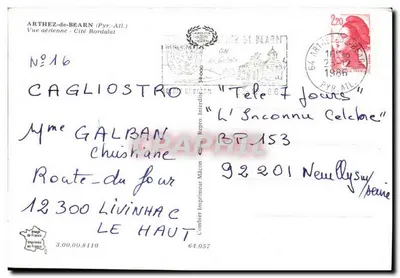 ARTHEZ-de-BEARN (Pyr.-Atl.)
Vue aérienne - Cité Bordalat
N° 16
CAGLIOSTRO
Mme GALBAN
Christiane
Route du Four
12300 LIVINHAC
LE HAUT
3.00.00.8110
64.057
Combier Imprimeur Mâcon
2,20
64 ARTHEZ
1986
PYR. ATL.
"Télé 7 Jours"
"L'Inconnu Célèbre"
BP. 153
92201 Neuilly s/
seine